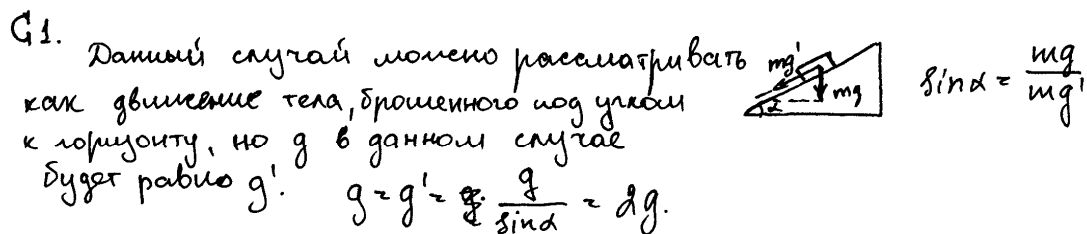 С1.
Данный случай можно рассматривать
как движение тела, брошенного под углом
к горизонту, но g в данном случае
будет равно g'.
g = g' = g/sinα = 2g.
mg'
mg
α
sinα = mg/mg'